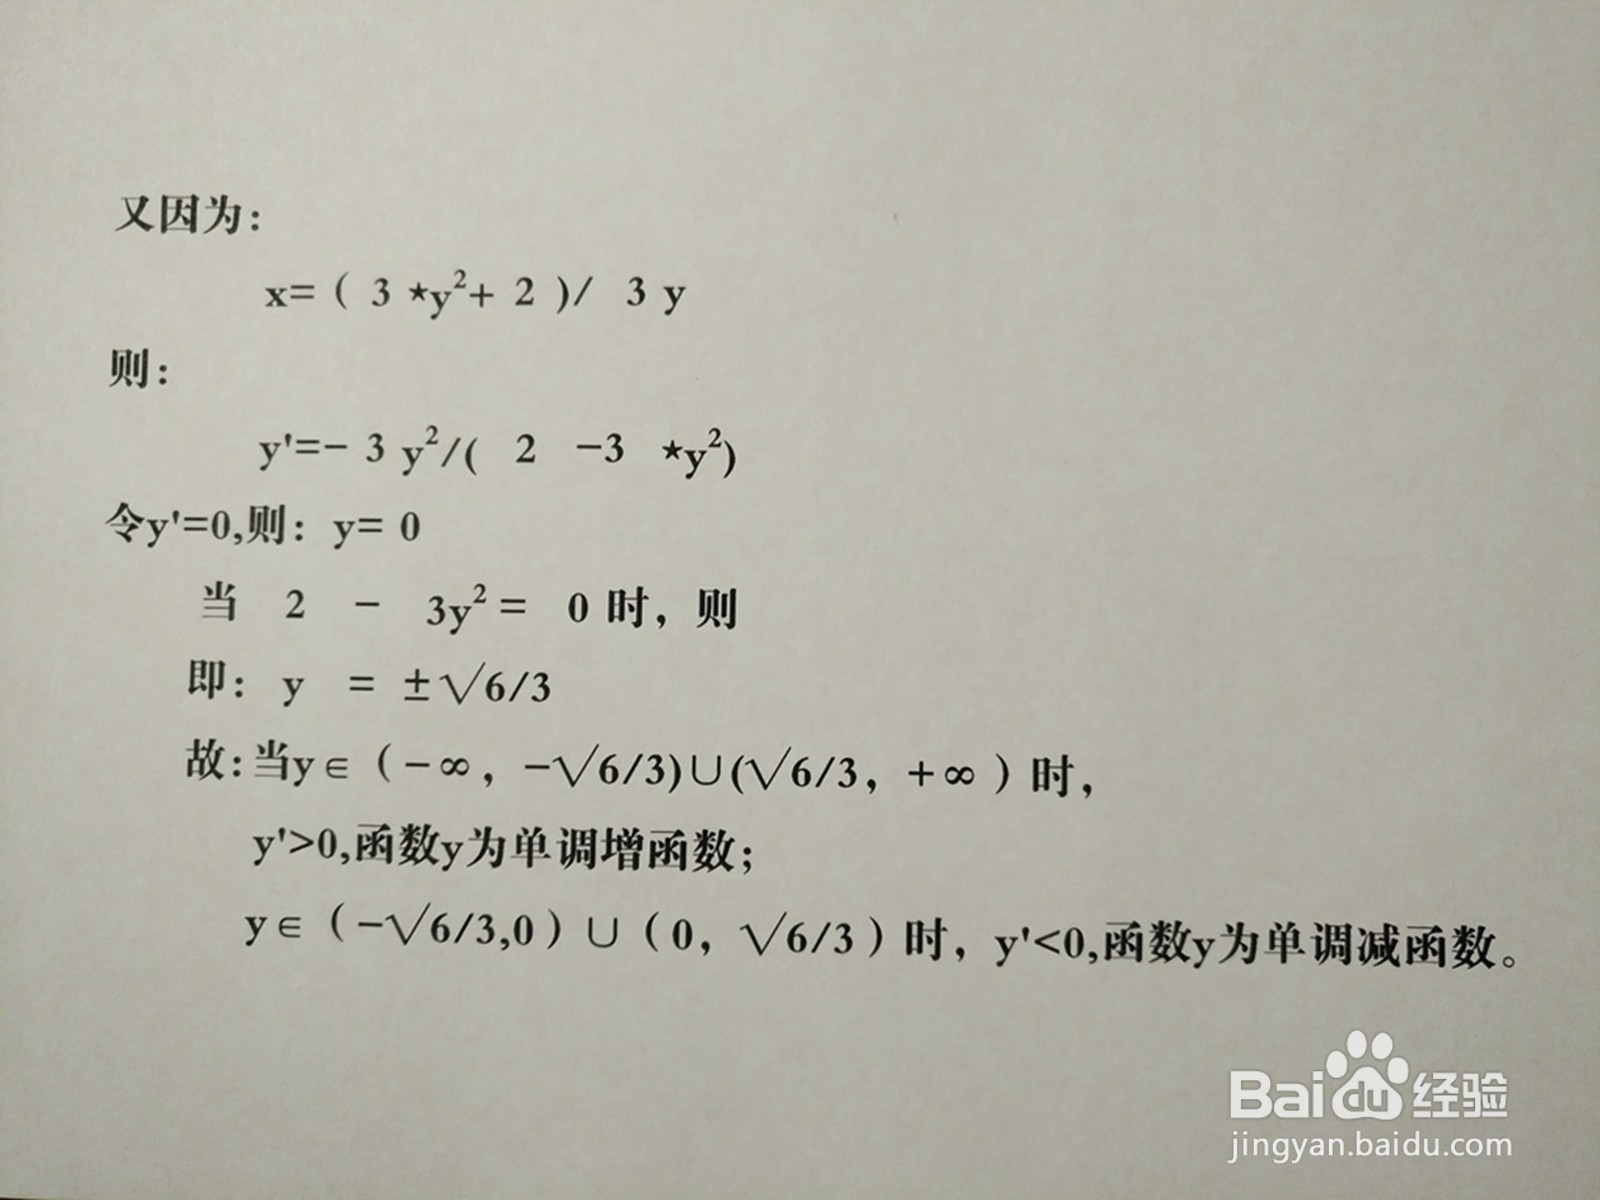 又因为:
x= ( 3 *y²+ 2 )/ 3 y
则:
y'=- 3 y²/( 2 -3 *y²)
令y'=0,则: y= 0
当 2 - 3y² = 0 时, 则
即: y = ±√6/3
故:当y∈(-∞, -√6/3)∪(√6/3, +∞)时,
y'>0,函数y为单调增函数;
y∈(-√6/3,0)∪(0, √6/3)时, y'<0,函数y为单调减函数。
Baidu经验
jingyan.baidu.com